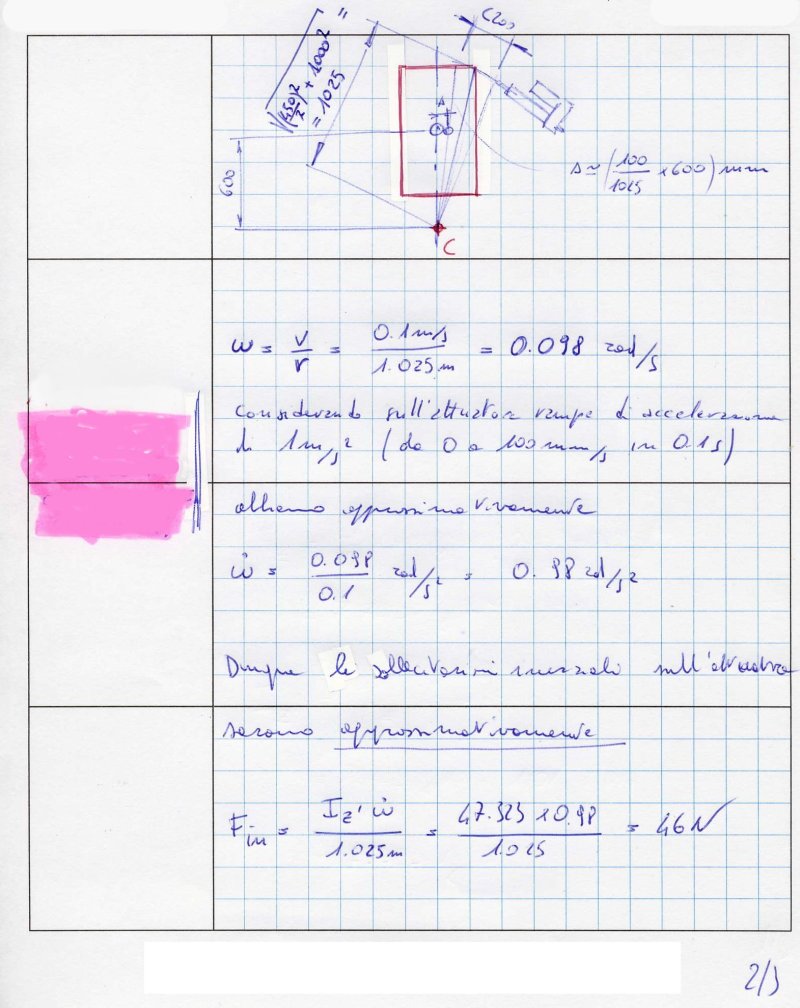 √(450/2)² + 1000²
= 1025
C200
600
Δ ≃ (100/1025 × 600) mm
C
ω = v/r = 0.1 m/s / 1.025 m = 0.098 rad/s
Considerando sull'attuatore rampe di accelerazione
di 1 m/s² (da 0 a 100 mm/s in 0.1 s)
abbiamo approssimativamente
ω̇ = 0.098/0.1 rad/s² = 0.98 rad/s²
Dunque le sollecitazioni inerziali sull'attuatore
saranno approssimativamente
F_in = I_z' ω̇ / 1.025 m = 47.323 × 0.98 / 1.025 = 46 N
2/3